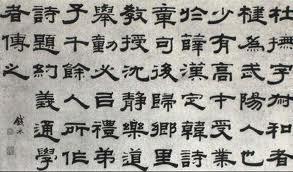 杜撫字叔和者
犍為武陽人也
少有高才受業
於薛漢定韓詩
章句後歸鄉里
教授沈靜樂道
舉動必以禮弟
子千餘人所作
詩題約義通學
者傳之
錢泳